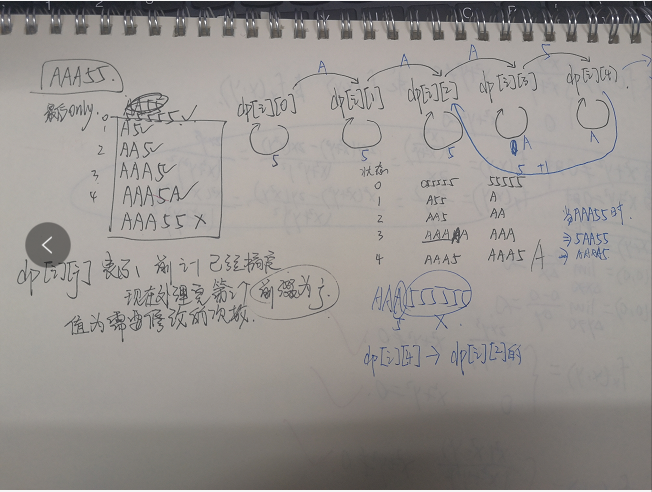 AAA55.
最后only.
0 55555 ✓
1 A5 ✓
2 AA5 ✓
3 AAA5 ✓
4 AAA5A ✓
AAA55 ✗
A A A 5
dp[i][0] dp[i][1] dp[i][2] dp[i][3] dp[i][4]
5 5 5 A A
5 +1
状态
0 55555 55555
1 A55 A
2 AA5 AA
3 AAAAA AAA
4 AAA5 AAA5 A
当AAA55时.
→ 5AA55
→ AAAA5
dp[i][j] 表示, 前 i-1 已经搞定
现在处理完第i个 前缀为j.
值为需要修改的次数.
AAA55555
5 X.
dp[i][4] → dp[i][2]的